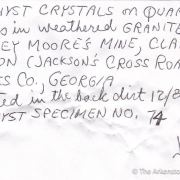 YST CRYSTALS on QUAR
s in weathered GRANITE
EY MOORE'S MINE, CLA
ON (JACKSON'S CROSS ROA
ES CO., GEORGIA
ted in the back dirt 12/8
YST SPECIMEN NO. 74
© The Arkenstone